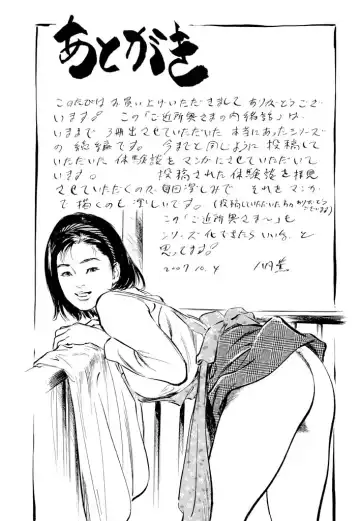 あとがき
このたびは お買い上げいただきまして ありがとうござ
います。 この「ご近所奥さまの内緒話」は、
いままで 3冊出させていただいた 本当にあったシリーズ
の 続編です。 今までと同じように 投稿して
いただいた 体験談を マンガにさせていただいて
います。 投稿された 体験談を 拝見
させていただくので 毎回楽しみで それをマンガ
で描くのも楽しいです。(投稿していただいた方々 ありがとうございます)
この「ご近所奥さま〜」も
シリーズ化できたら いいな と
思ってます。
2007.10.4